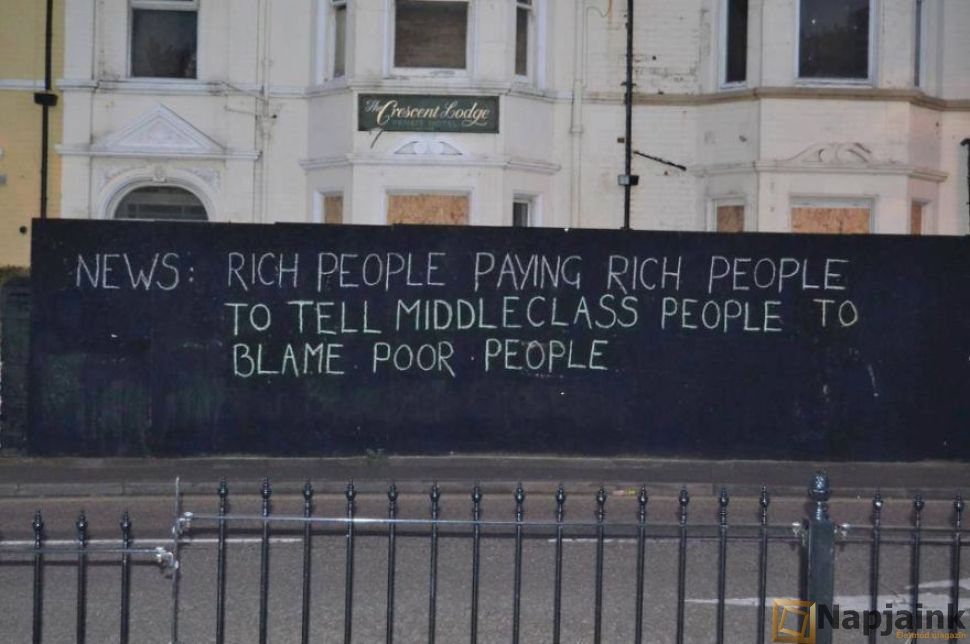 The Crescent Lodge
PRIVATE HOTEL
NEWS: RICH PEOPLE PAYING RICH PEOPLE
TO TELL MIDDLECLASS PEOPLE TO
BLAME POOR PEOPLE
Napjaink
Életmód magazin